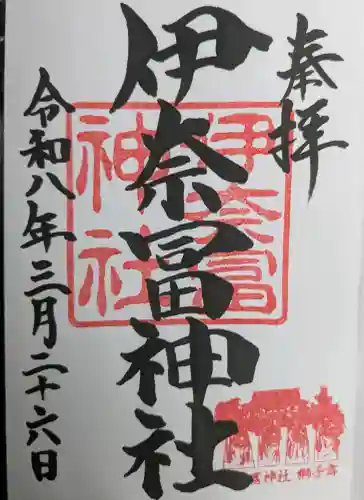 奉拝
伊奈冨神社
令和八年三月二十六日
伊奈冨
神社
神社 獅子